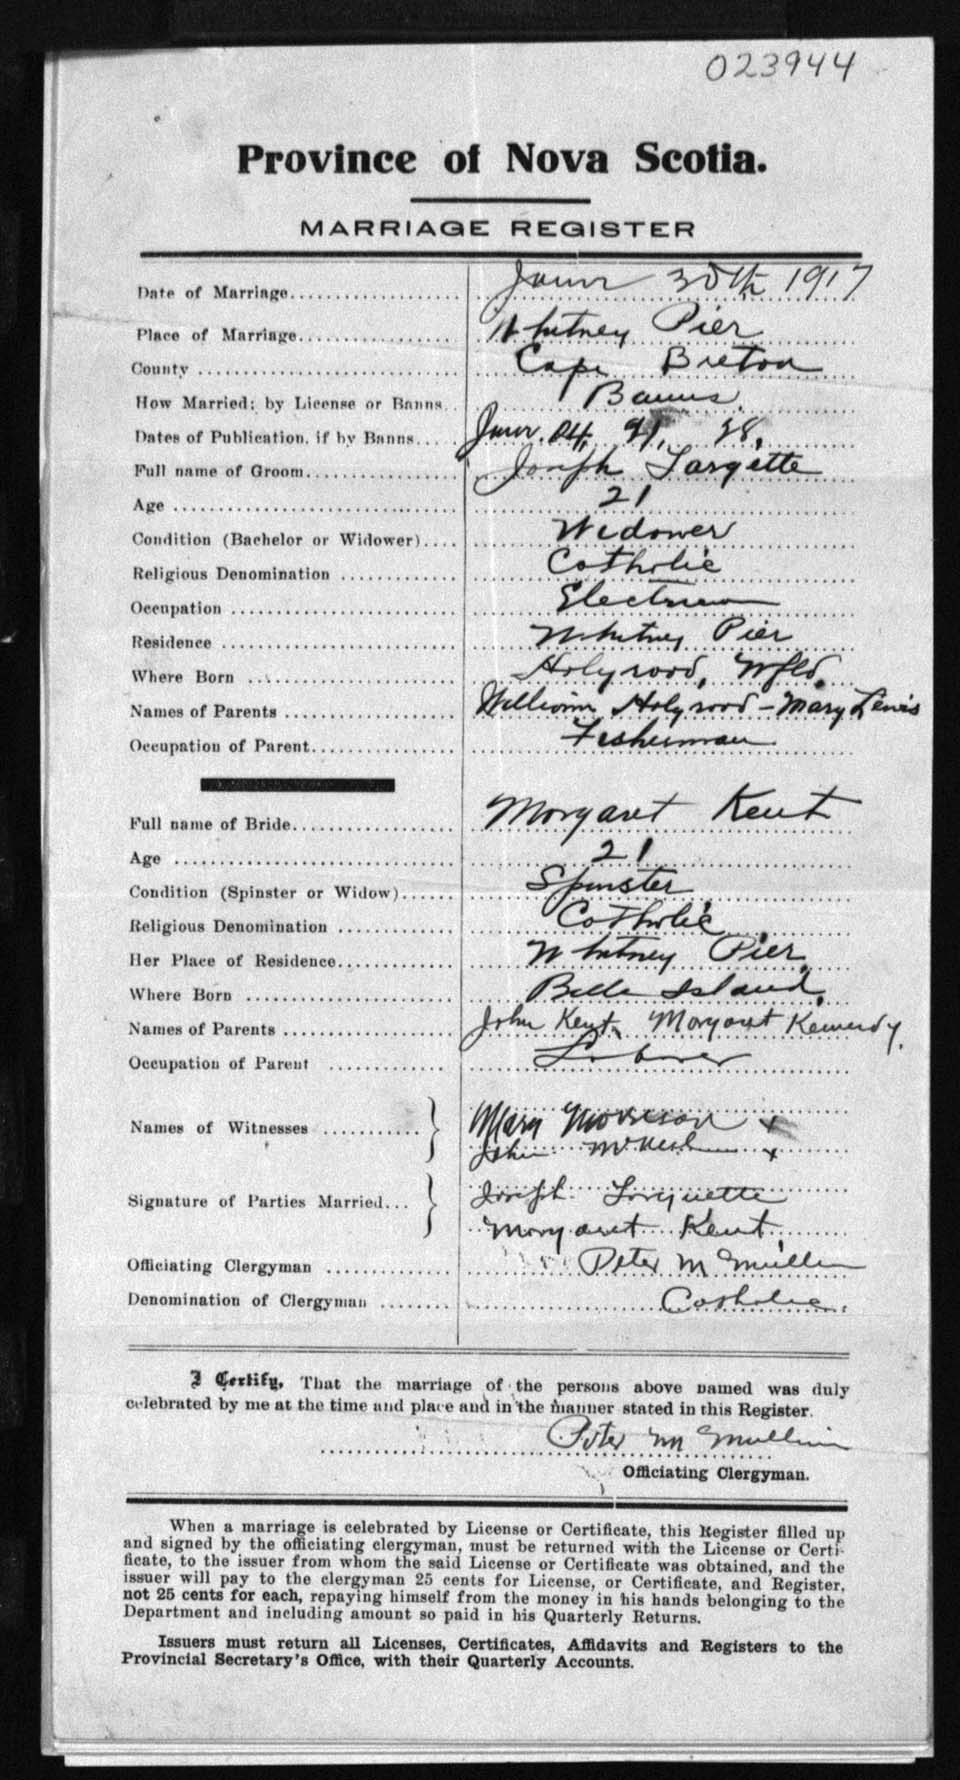 023944
Province of Nova Scotia.
MARRIAGE REGISTER
Date of Marriage 30th 1917
Place of Marriage Whitney Pier
County Cape Breton
How Married; by License or Banns Banns
Dates of Publication, if by Banns 21, 28,
Full name of Groom Joseph
Age 21
Condition (Bachelor or Widower) Widower
Religious Denomination Catholic
Occupation
Residence Whitney Pier
Where Born Holyrood, Nfld.
Names of Parents William Holyrood - Mary Lewis
Occupation of Parent Fisherman
Full name of Bride Margaret Kent
Age 21
Condition (Spinster or Widow) Spinster
Religious Denomination Catholic
Her Place of Residence Whitney Pier
Where Born Belle Island,
Names of Parents John Kent, Margaret Kennedy.
Occupation of Parent Laborer
Names of Witnesses Mary Morrison
John
Signature of Parties Married Joseph
Margaret Kent
Officiating Clergyman Peter
Denomination of Clergyman Catholic.
I Certify, That the marriage of the persons above named was duly
celebrated by me at the time and place and in the manner stated in this Register.
Peter
Officiating Clergyman.
When a marriage is celebrated by License or Certificate, this Register filled up
and signed by the officiating clergyman, must be returned with the License or Certi-
ficate, to the issuer from whom the said License or Certificate was obtained, and the
issuer will pay to the clergyman 25 cents for License, or Certificate, and Register,
not 25 cents for each, repaying himself from the money in his hands belonging to the
Department and including amount so paid in his Quarterly Returns.
Issuers must return all Licenses, Certificates, Affidavits and Registers to the
Provincial Secretary's Office, with their Quarterly Accounts.